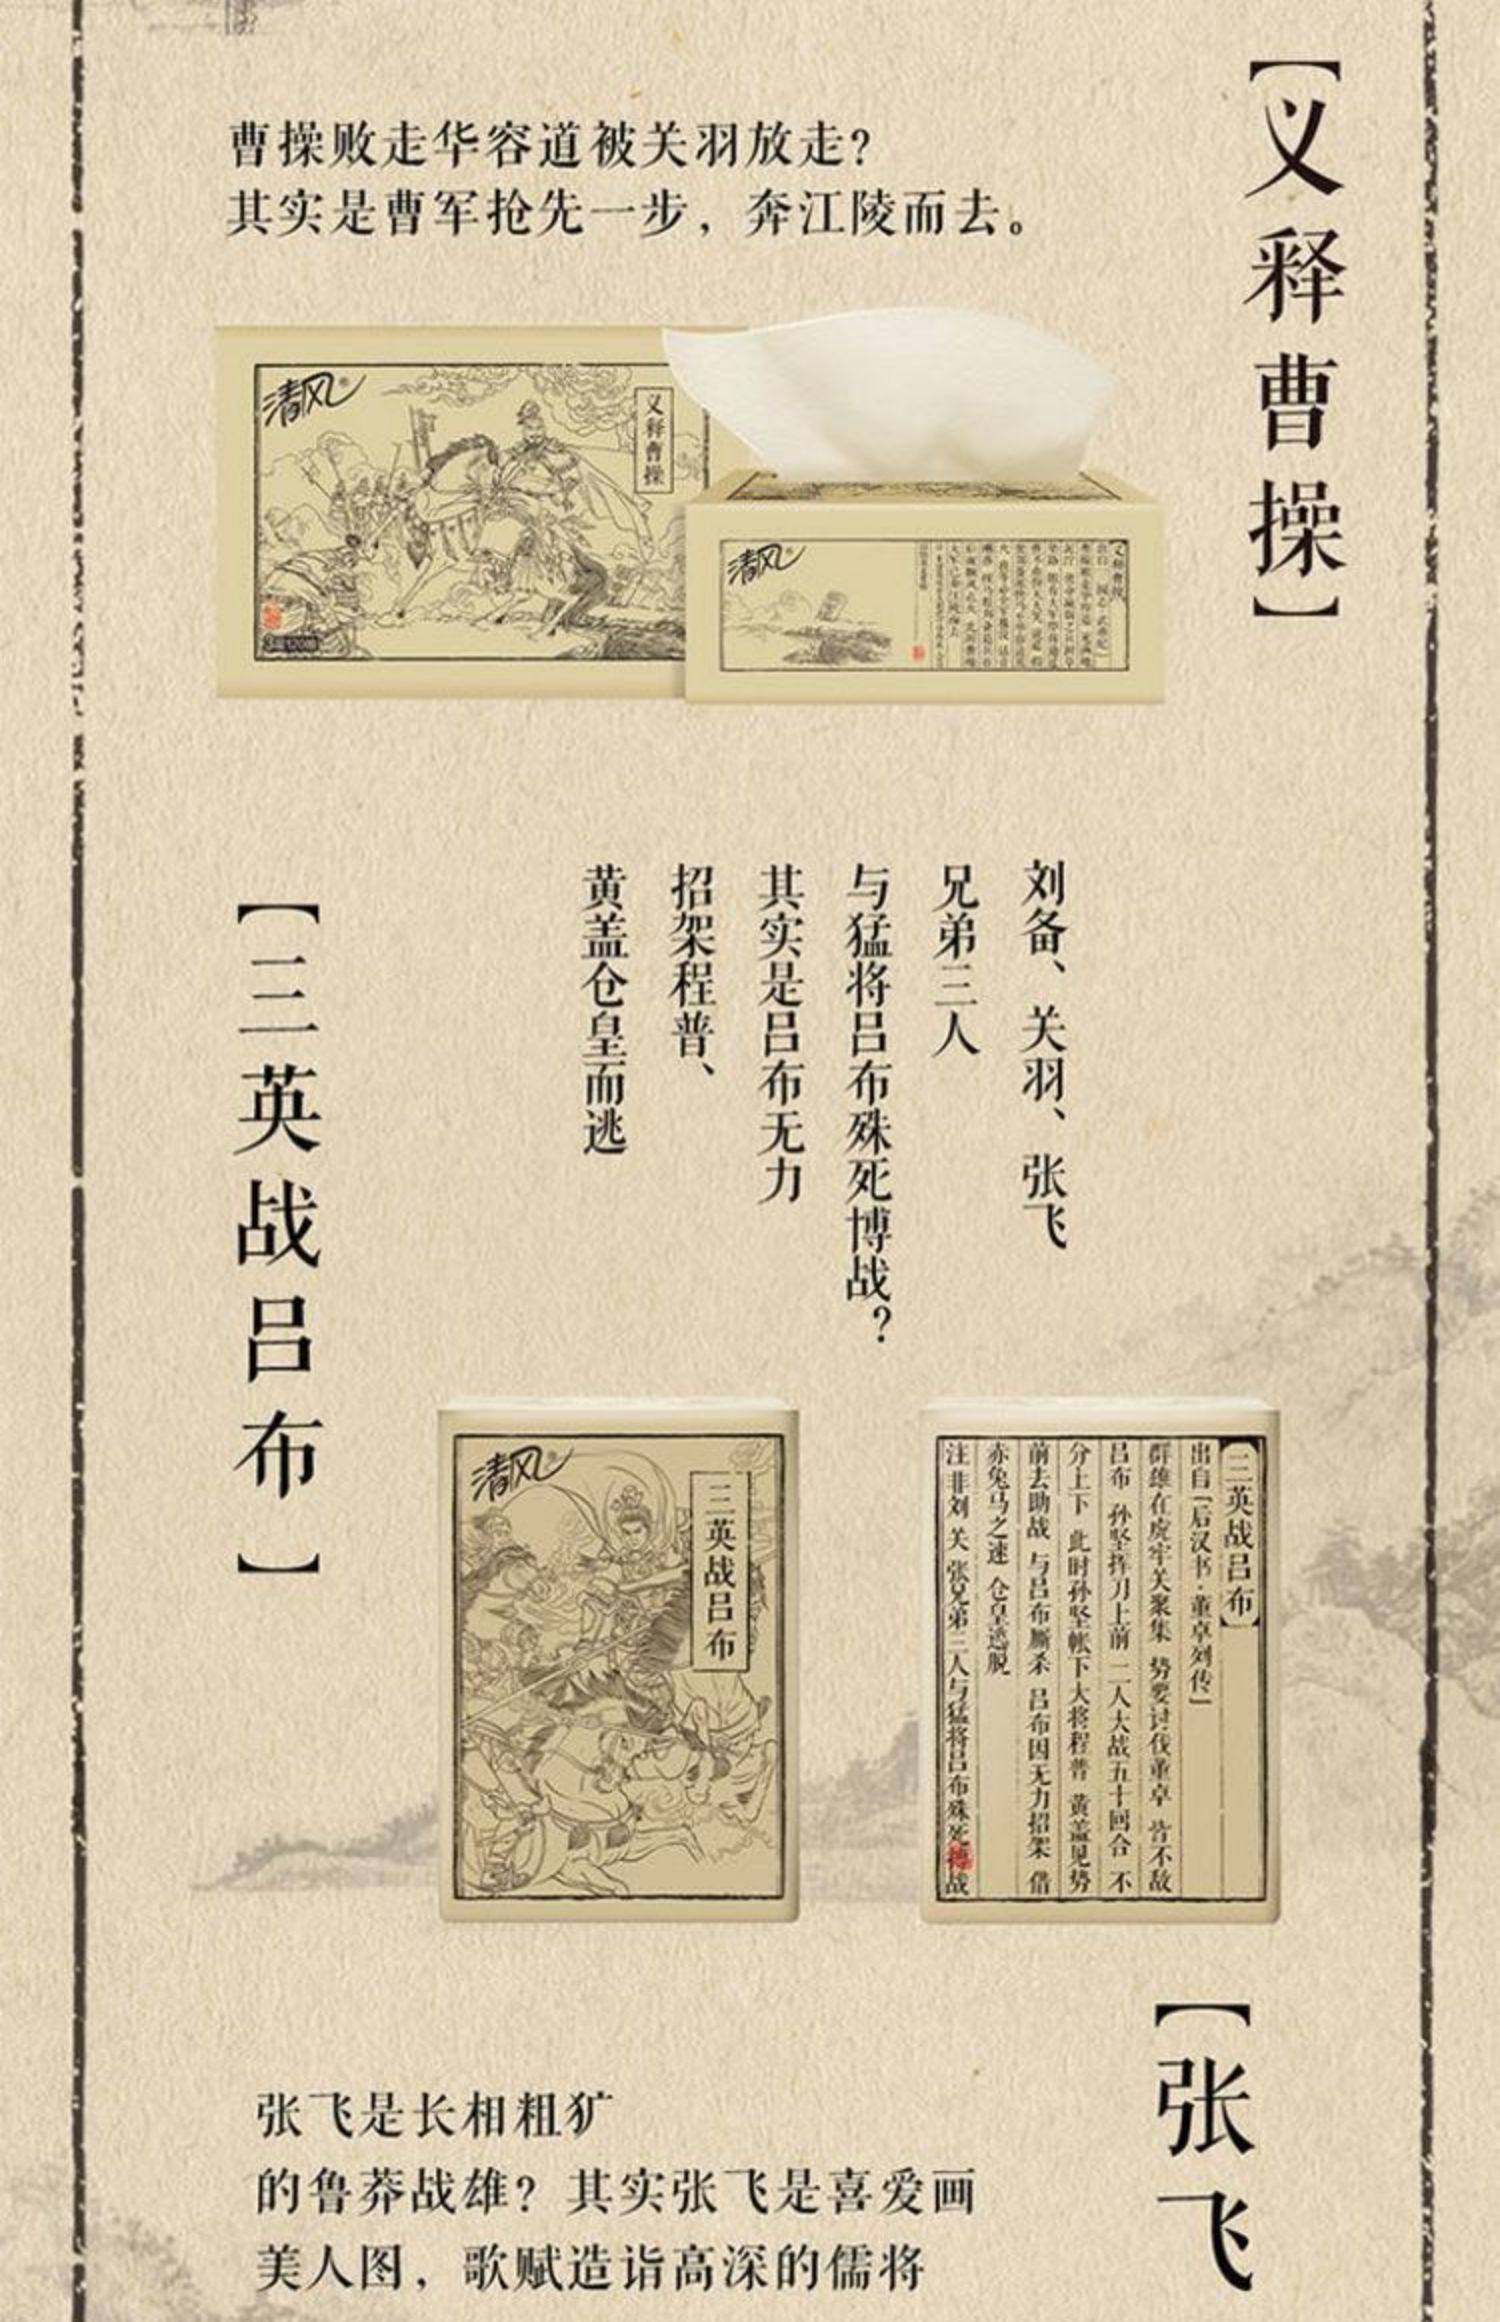 【义释曹操】
曹操败走华容道被关羽放走?
其实是曹军抢先一步，奔江陵而去。
清风
义释曹操
清风
【三英战吕布】
刘备、关羽、张飞
兄弟三人
与猛将吕布殊死博战?
其实是吕布无力
招架程普、
黄盖仓皇而逃
清风
三英战吕布
【三英战吕布】
出自「后汉书·董卓列传」
群雄在虎牢关聚集 势要讨伐董卓 皆不敌
吕布 孙坚挥刀上前 二人大战五十回合 不
分上下 此时孙坚帐下大将程普 黄盖见势
前去助战 与吕布厮杀 吕布因无力招架 借
赤兔马之速 仓皇逃脱
注 非刘 关 张兄弟三人与猛将吕布殊死搏战
【张飞
张飞是长相粗犷
的鲁莽战雄? 其实张飞是喜爱画
美人图，歌赋造诣高深的儒将